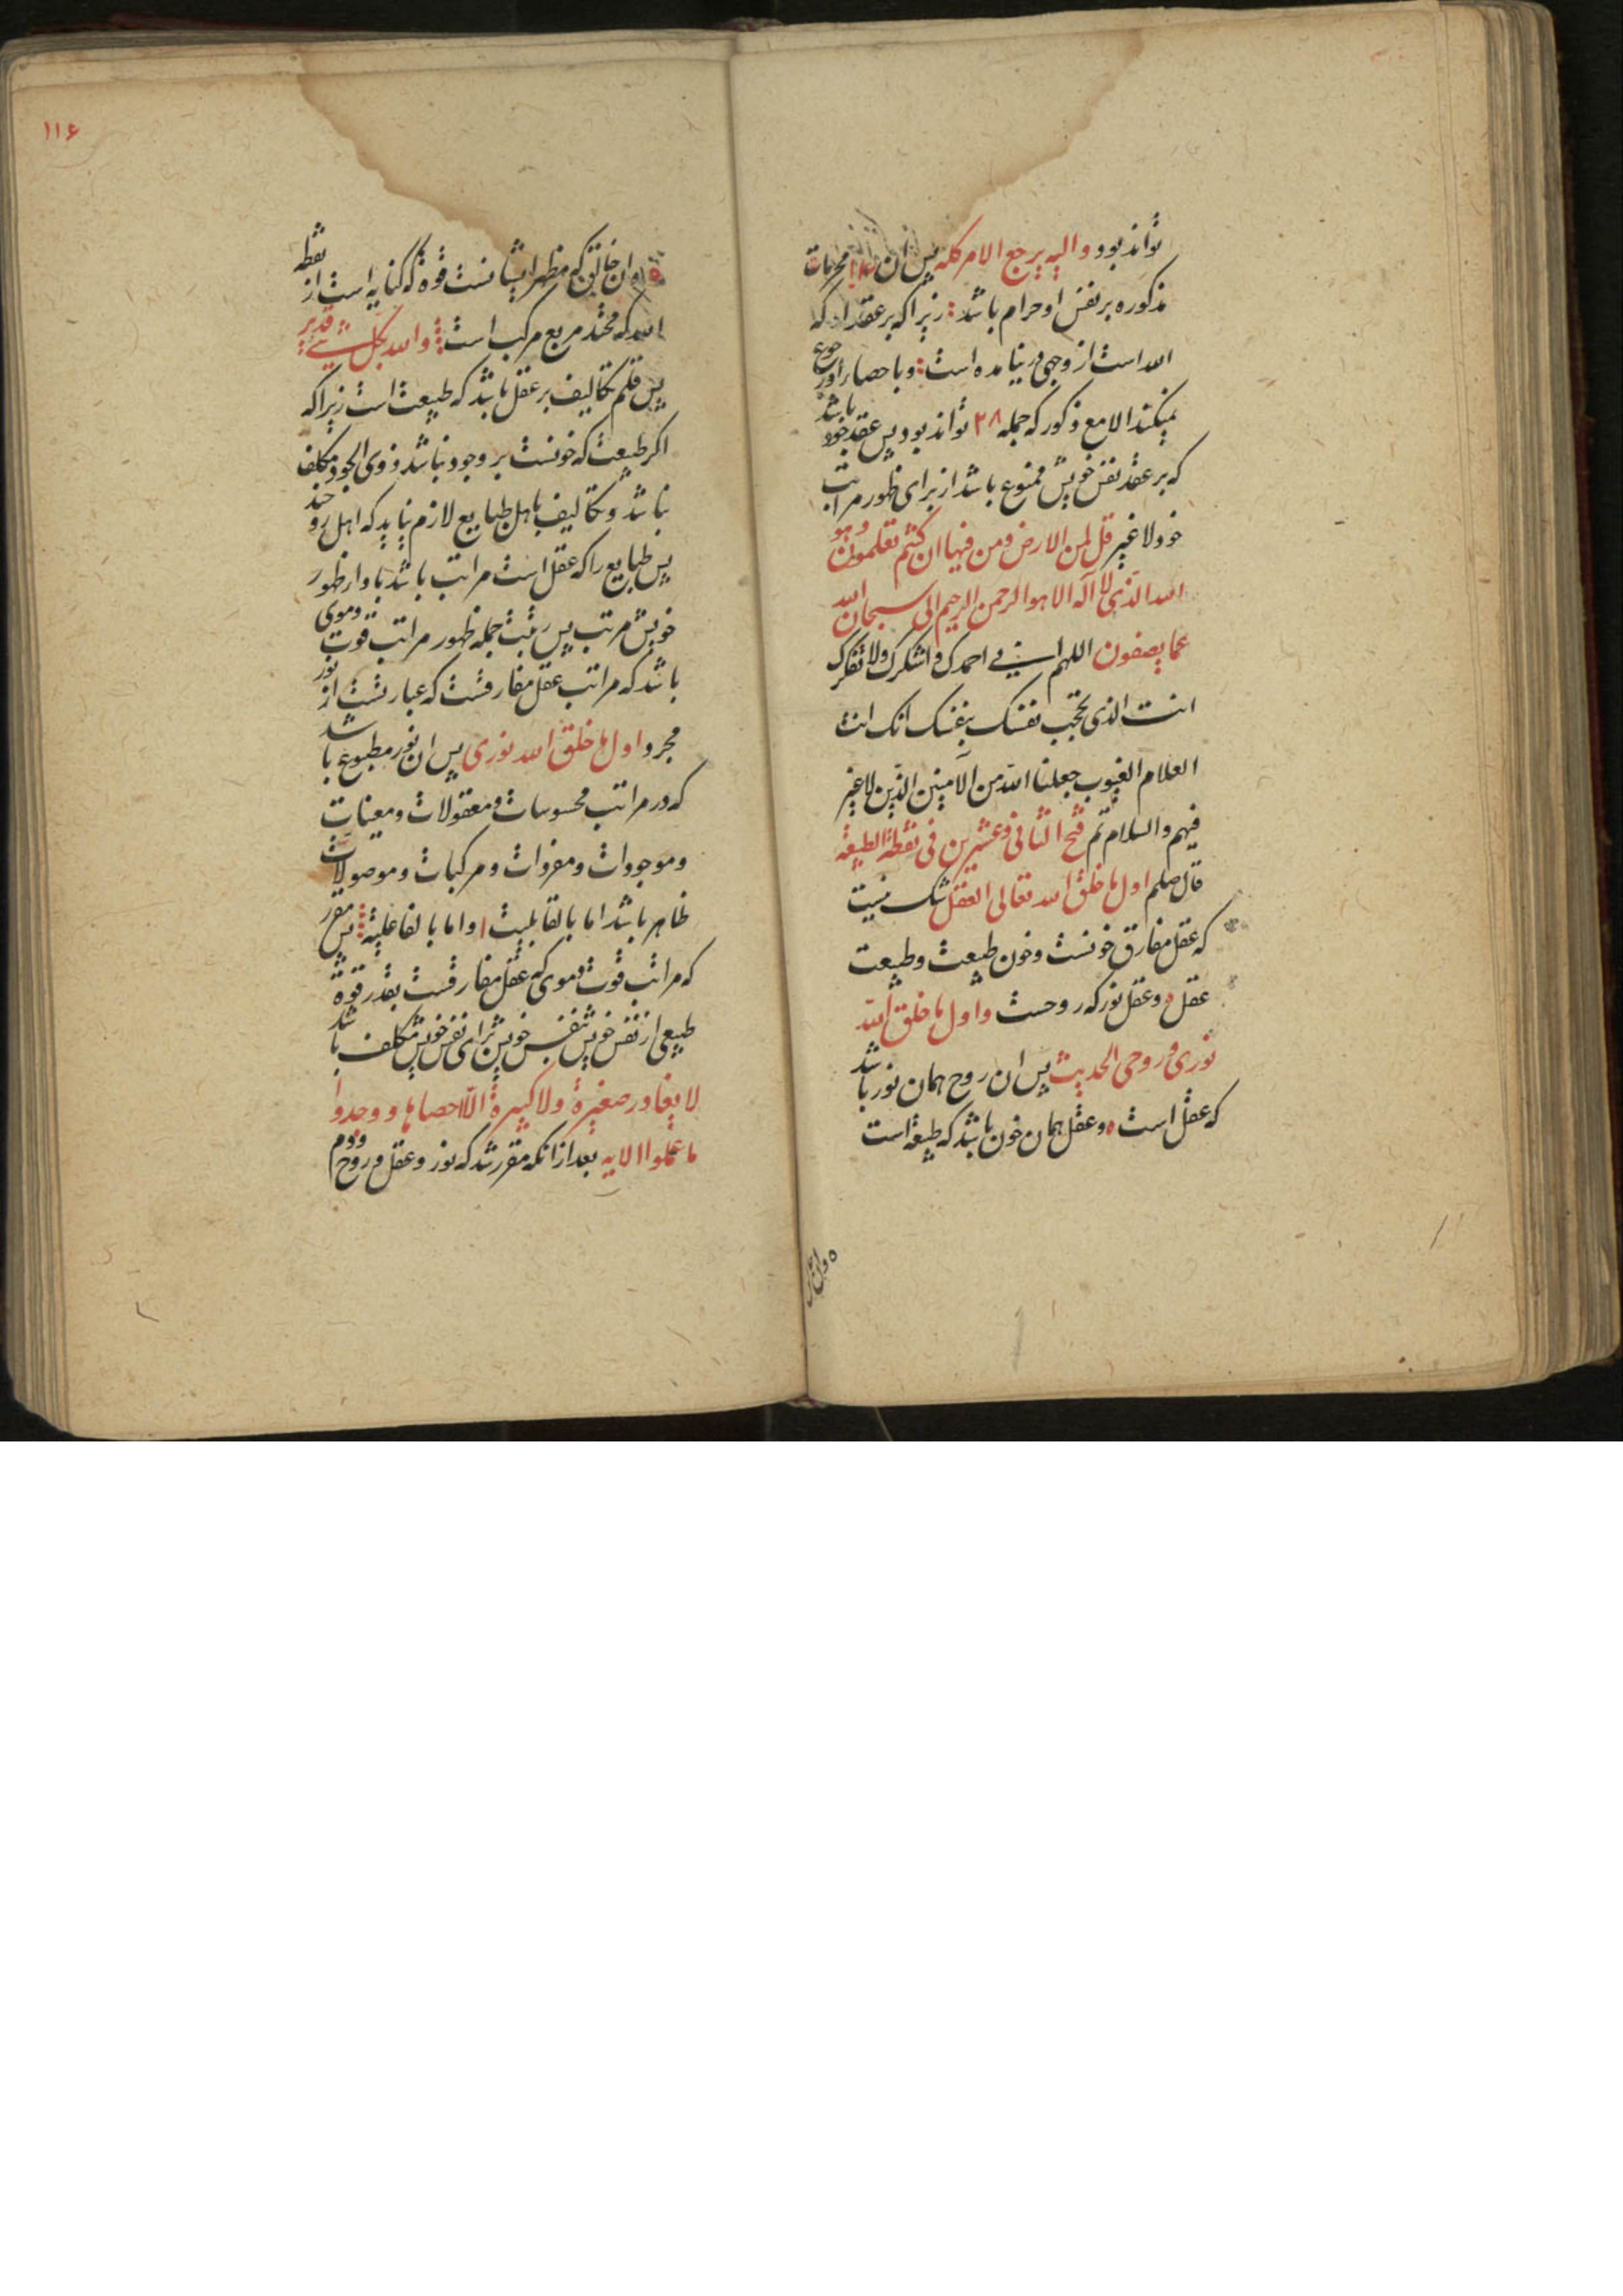 تواند بود و الیه یرجع الامر کله پس ان محرمات
مذکوره بر نفس او حرام باشد زیرا که بر عقد او که
الله است از وجهی در نیامده است و باحصار اور رجوع
نمیکند الا مع ذکور که جمله ۲۸ تواند بود پس عقد خود باشد
که بر عقد نفس خویش ممنوع باشد از برای ظهور مراتب
خود لا غیر قل لمن الارض ومن فیها ان کنتم تعلمون وهو
الله الذی لا اله الا هو الرحمن الرحیم الی سبحان الله
عما یصفون اللهم انی احمدک و اشکرک ولا نکفرک
انت الذی تحجب نفسک بنفسک انک انت
العلام الغیوب جعلنا الله من الآمنین الذین لا غیر
فیهم والسلام تم فتح الثانی و عشرین فی نقطة الطبیعة
قال صلعم اول ما خلق الله تعالی العقل شک نیست
که عقل مفارق خونست وخون طبیعت وطبیعت
عقل و عقل نور که روحست و اول ما خلق الله
نوری و روحی الحدیث پس ان روح همان نور باشد
که عقل است و عقل همان خون باشد که طبیعة است
۱۱۶
وان خالق که مظهر ایشانست قوة که کنایه است از نقطه
الله که محمد مربع مرکب است والله بکل شیء قدیر
پس قلم تکالیف بر عقل باشد که طبیعت است زیرا که
اکر طبیعت که خونست بر وجود نباشد ذوی الجود مکلف
نباشد و تکالیف باهل طبایع لازم نیاید که اهل رو خند
پس طبایع را که عقل است مراتب باشد با وار ظهور
خویش مرتب پس جمله ظهور مراتب قوت دموی
باشد که مراتب عقل مفارقست که عبارتست از نور
مجرد اول ما خلق الله نوری پس ان نور مطبوع باشد
که در مراتب محسوسات ومعقولات ومعینات
وموجودات ومفردات و مرکبات وموصولات
ظاهر باشد اما بالقابلیت و اما بالفاعلیة پس مقرر
که مراتب قوت دموی که عقل مفارقست بقدر قوة
طبیعی از نفس خویش بنفس خویش برای نفس خویش مکلف باشد
لا یغادر صغیرة ولا کبیرة الا احصاها و وجدوا
ما عملوا الایه بعد از انکه مقرر شد که نور و عقل و روح و دم